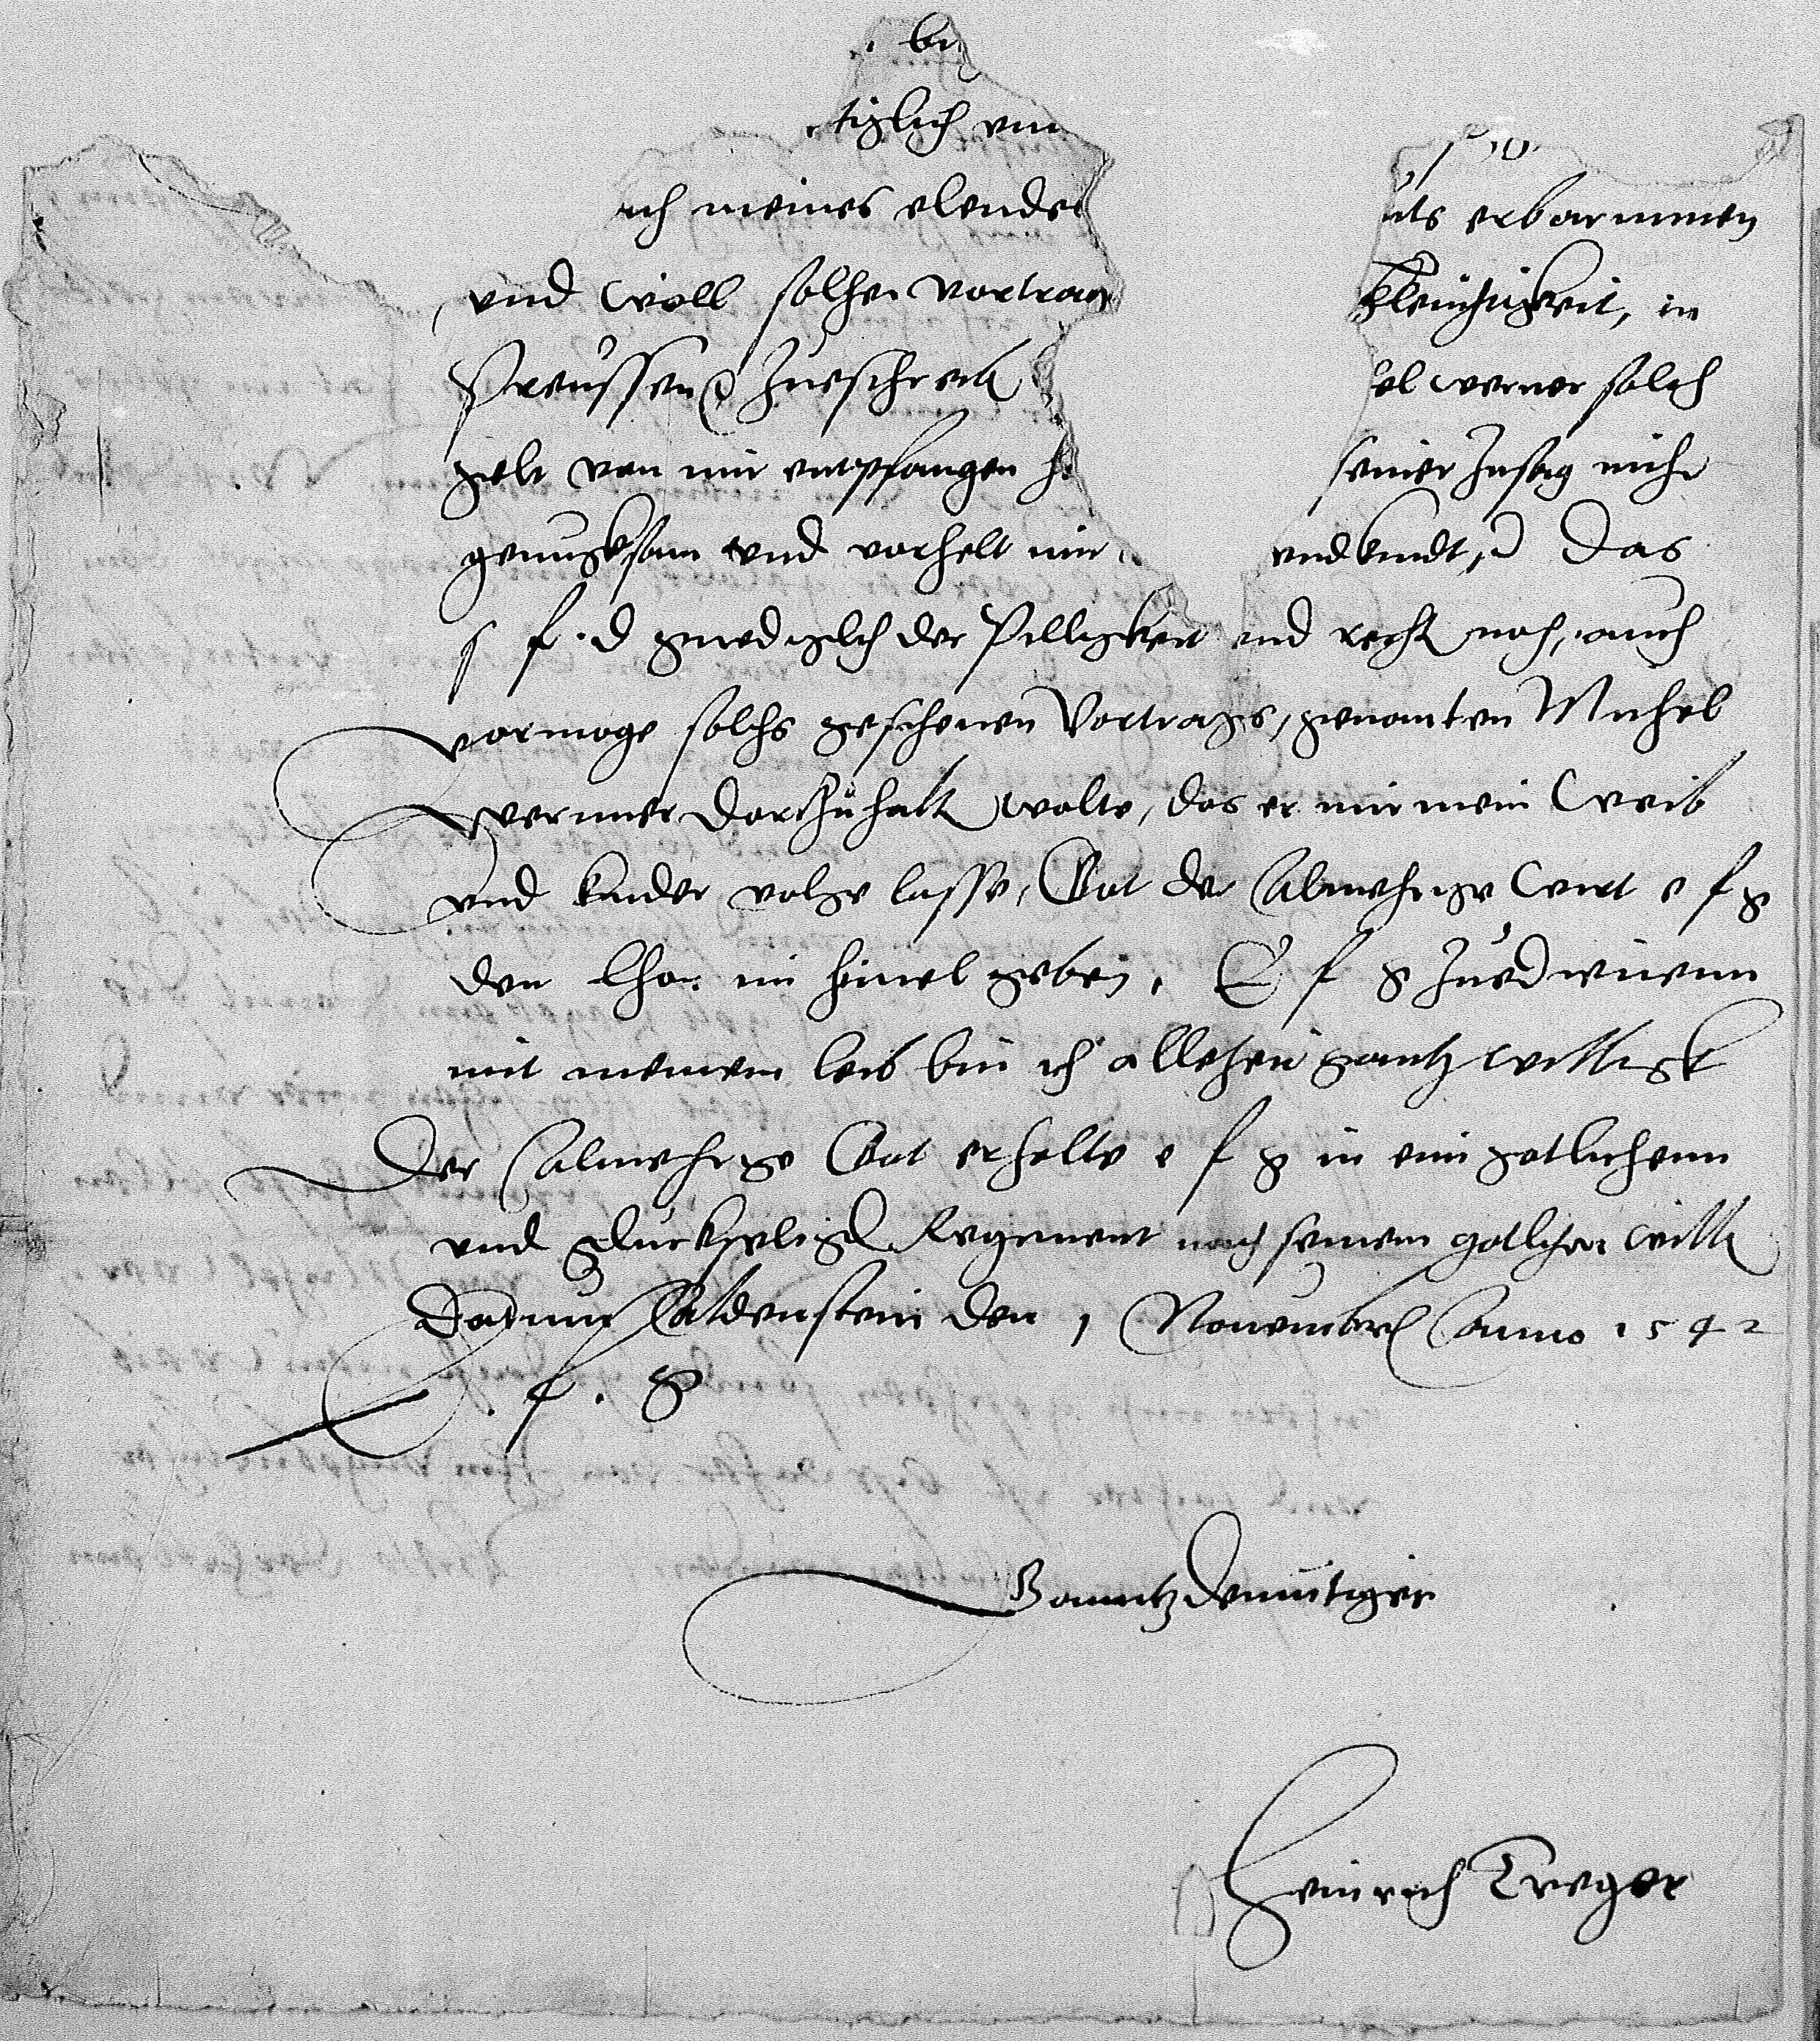 be
tiglich vnd
ich meines elendes nts erbarmmen
vnd woll solhen vortrag kleuchtigkeit, in
Preussen zueschreib el werner solch
gelt von mir entpfangen h seiner Zusag nicht
genugksam vnd vorhelt mir vnd kindt, Das
s f. d gnediglich der Pilligkeit vnd recht noch, auch
vormoge solchs geschenen Vortrags, genanten Michel
wernner dorthzu halt wolte, das er mir mein Weib
vnd kinder volge lasse, Got der Almechtige wirt e f g
den lhon im himel geben, E f g Zued wienenn
mit meinem leib bin ich allezeit gantz willigk
Der Almechtige Got erhalte e f g in eim gotlichenn
vnd gluckseligen Regiment nach seinem gotlichen will
Datum Aldenstein den 1 Novembris Anno 1542
E. f. g
Gannitz demutiger
Heinrich Treger